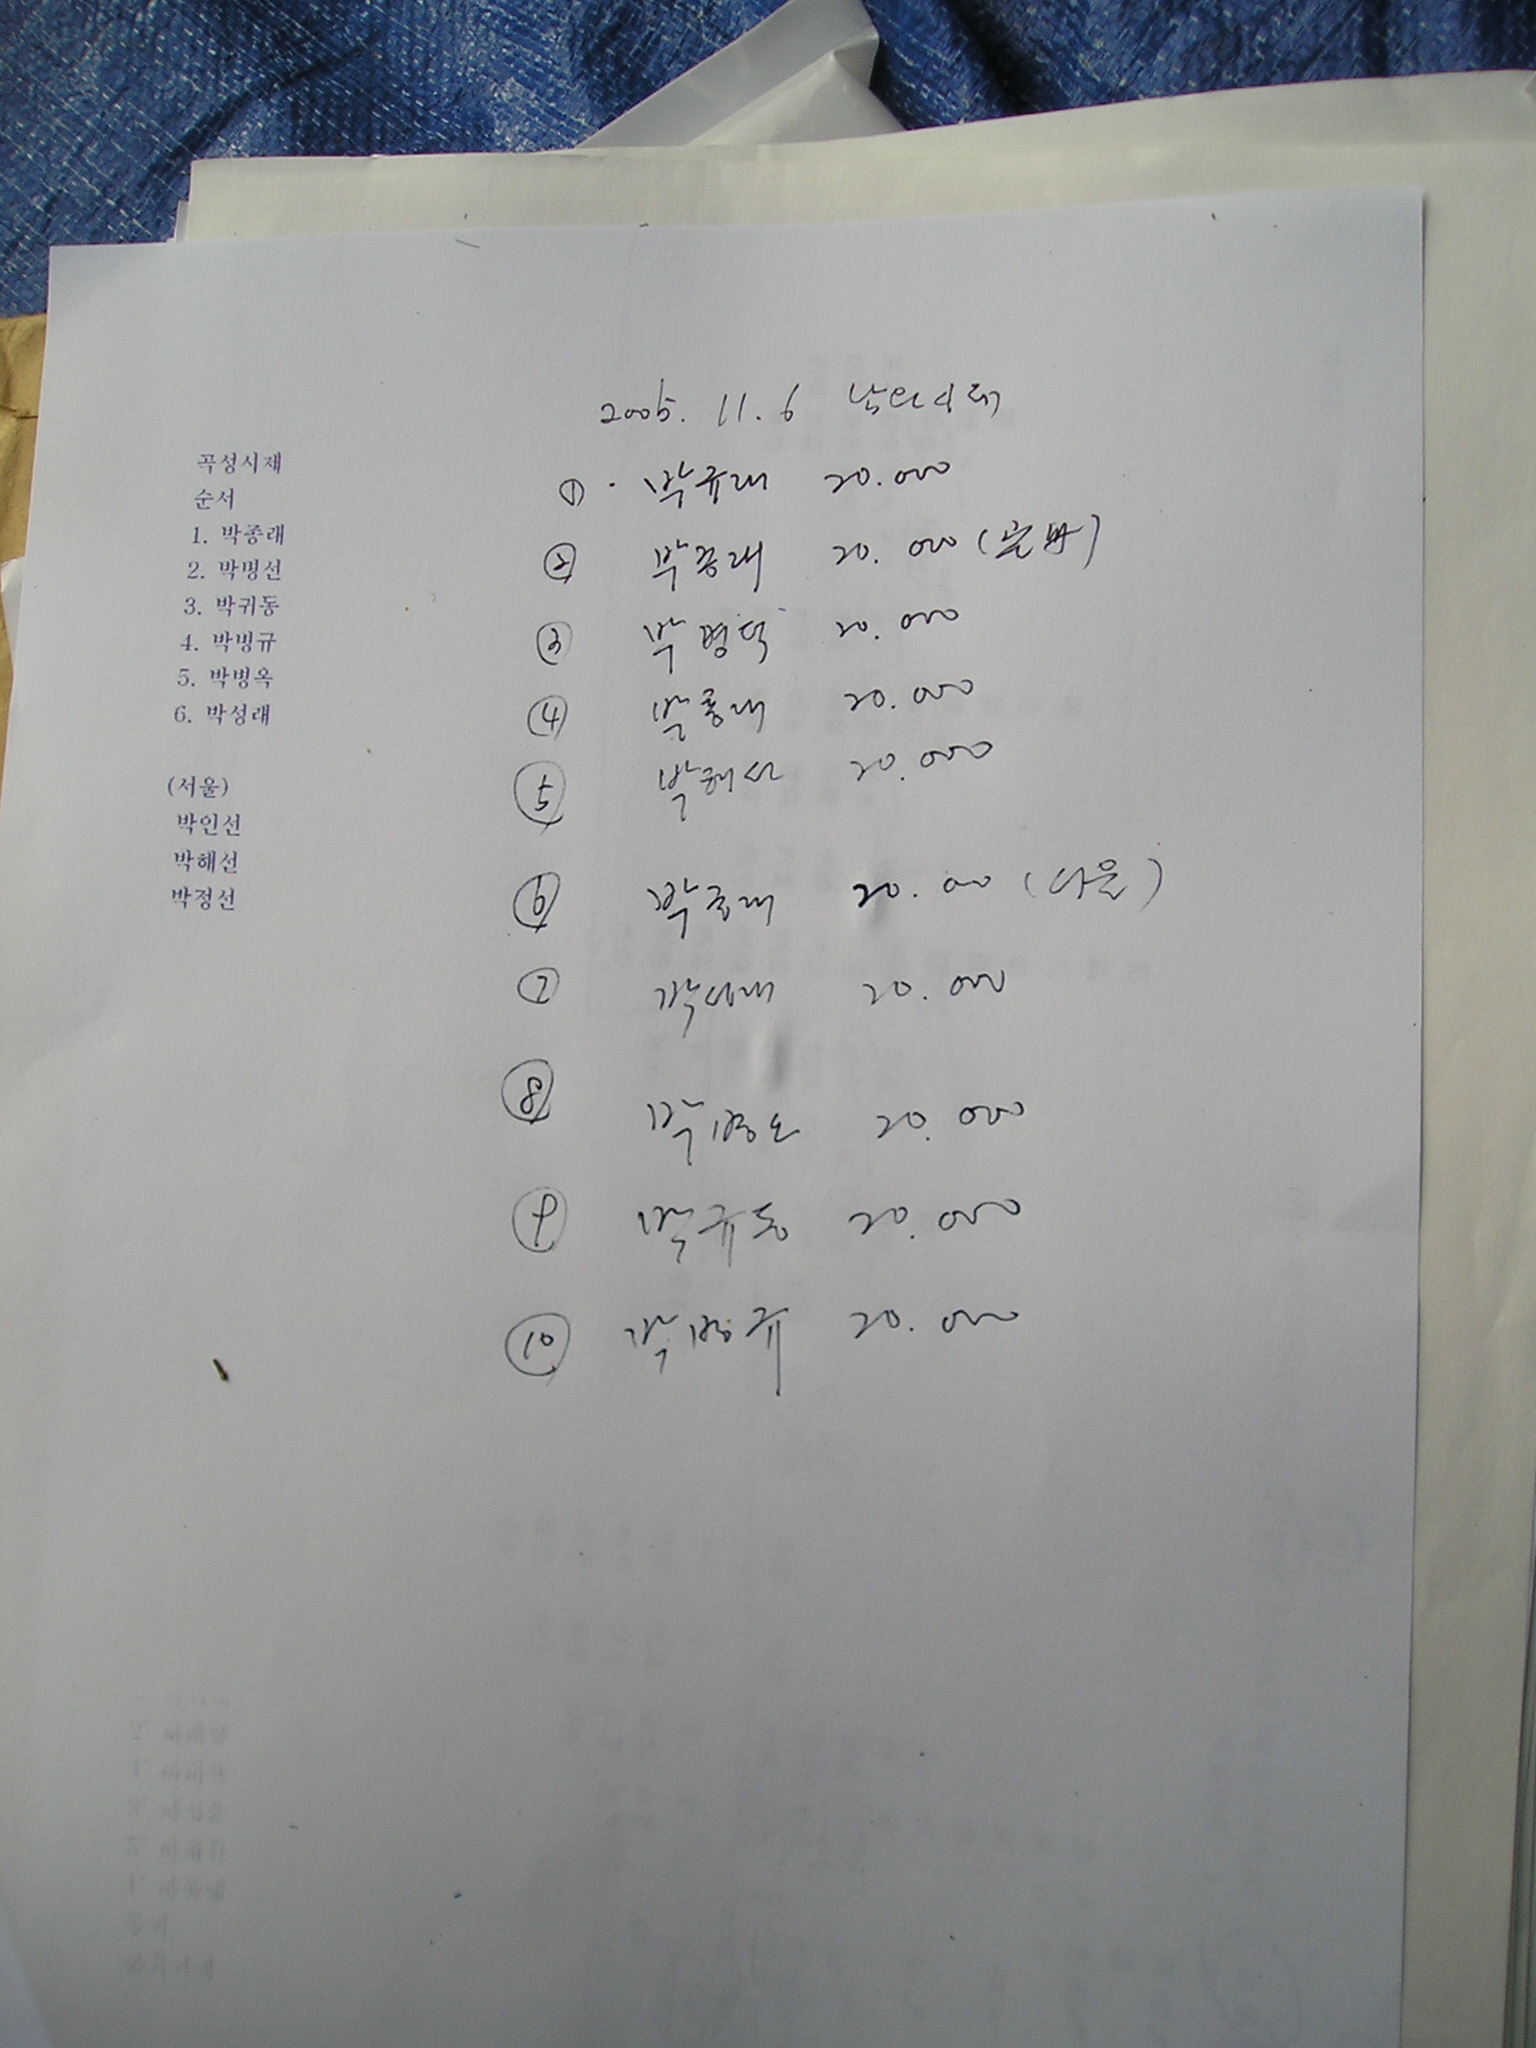 곡성시제
순서
1. 박종래
2. 박병선
3. 박귀동
4. 박병규
5. 박병옥
6. 박성래
(서울)
박인선
박해선
박정선
2005. 11. 6
① 박규래 20.000
② 박종래 20.000
③ 박 20.000
④ 박종래 20.000
⑤ 박해선 20.000
⑥ 박종래 20.000
⑦ 박성래 20.000
⑧ 박병선 20.000
⑨ 박귀동 20.000
⑩ 박병규 20.000